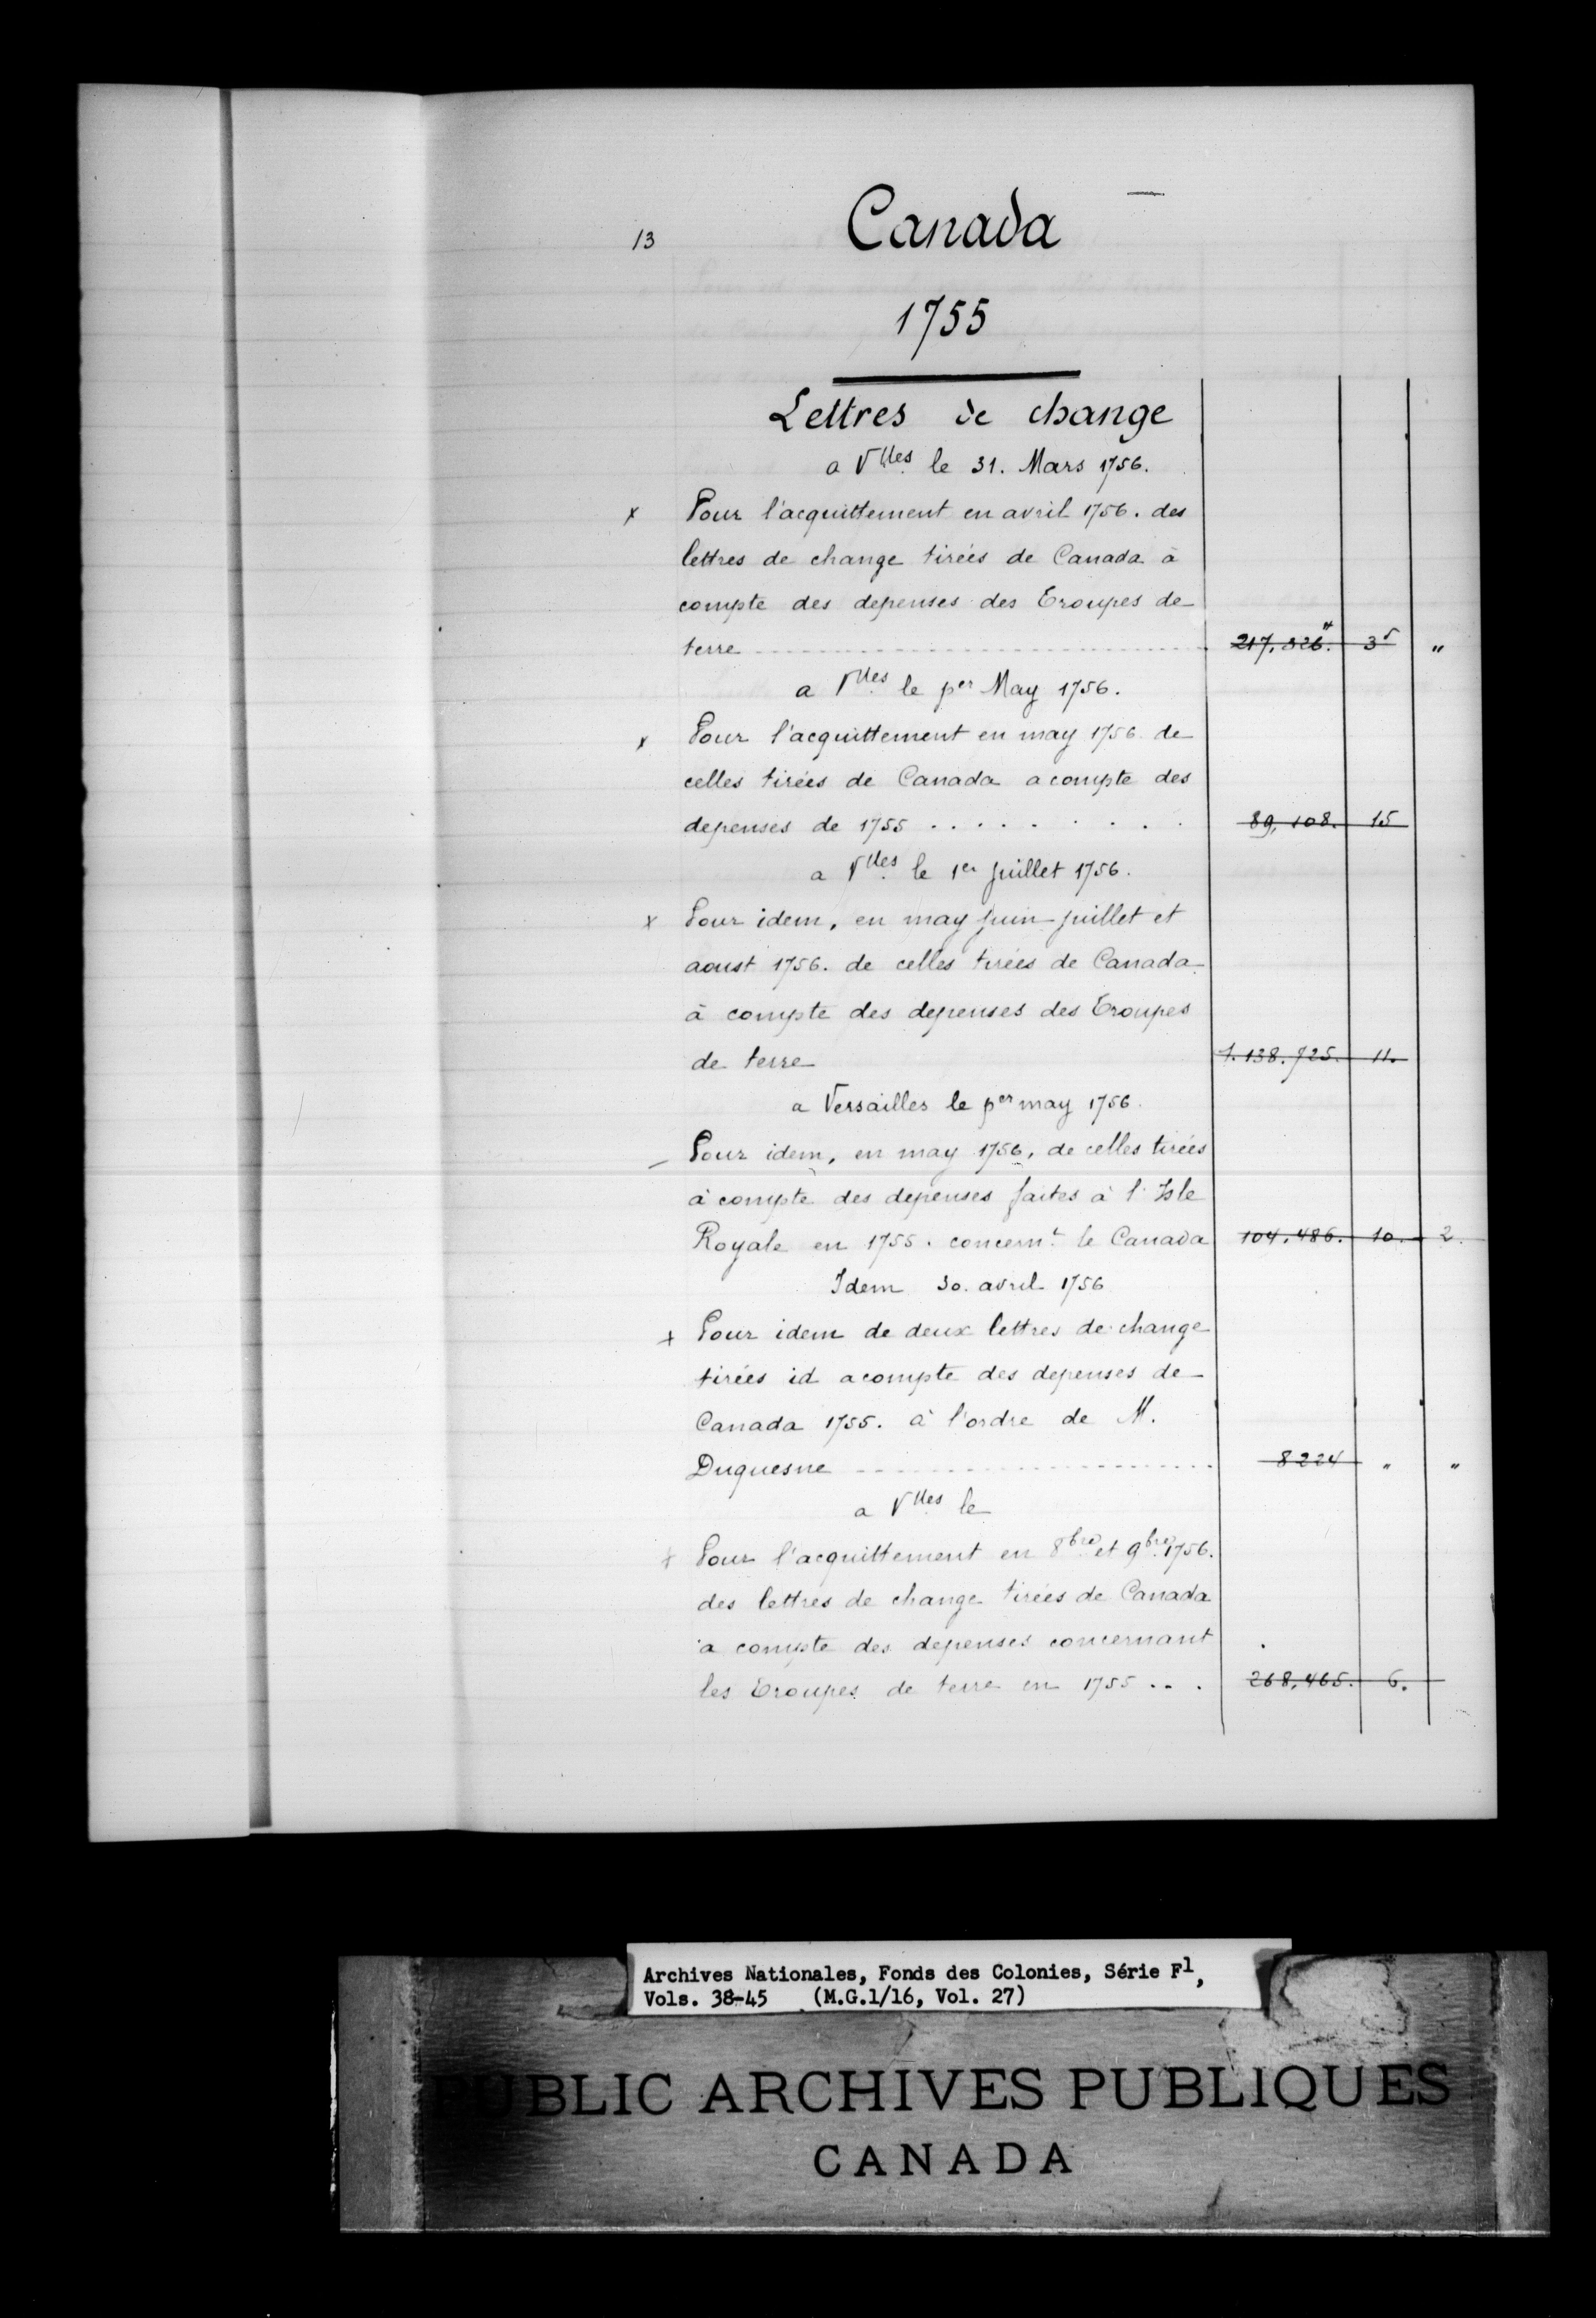 13
Canada
1755
Lettres de change
a Vlles le 31. Mars 1756.
x Pour l'acquittement en avril 1756. des
lettres de change tirées de Canada à
compte des depenses des Troupes de
terre 217,326.# 3s "
a Vlles le per May 1756.
x Pour l'acquittement en may 1756 de
celles tirées de Canada a compte des
depenses de 1755 . . . . . . . . . 89,108. 15
a Vlles le 1er juillet 1756.
x Pour idem, en may juin juillet et
aoust 1756. de celles tirées de Canada
à compte des depenses des Troupes
de terre 1.138.725. 11.
a Versailles le per may 1756.
_ Pour idem, en may 1756, de celles tirées
à compte des depenses faites à l'Isle
Royale en 1755. concernt le Canada 104.486. 10. 2.
Idem 30. avril 1756
x Pour idem de deux lettres de change
tirées id a compte des depenses de
Canada 1755. à l'ordre de M.
Duquesne 8224 " "
a Vlles le
x Pour l'acquittement en 8bre et 9bre 1756.
des lettres de change tirées de Canada
a compte des depenses concernant
les Troupes de terre en 1755 . . . 268,465. 6.
Archives Nationales, Fonds des Colonies, Série F1,
Vols. 38-45 (M.G.1/16, Vol. 27)
PUBLIC ARCHIVES PUBLIQUES
CANADA